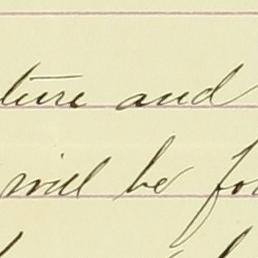 ture and
will be fo